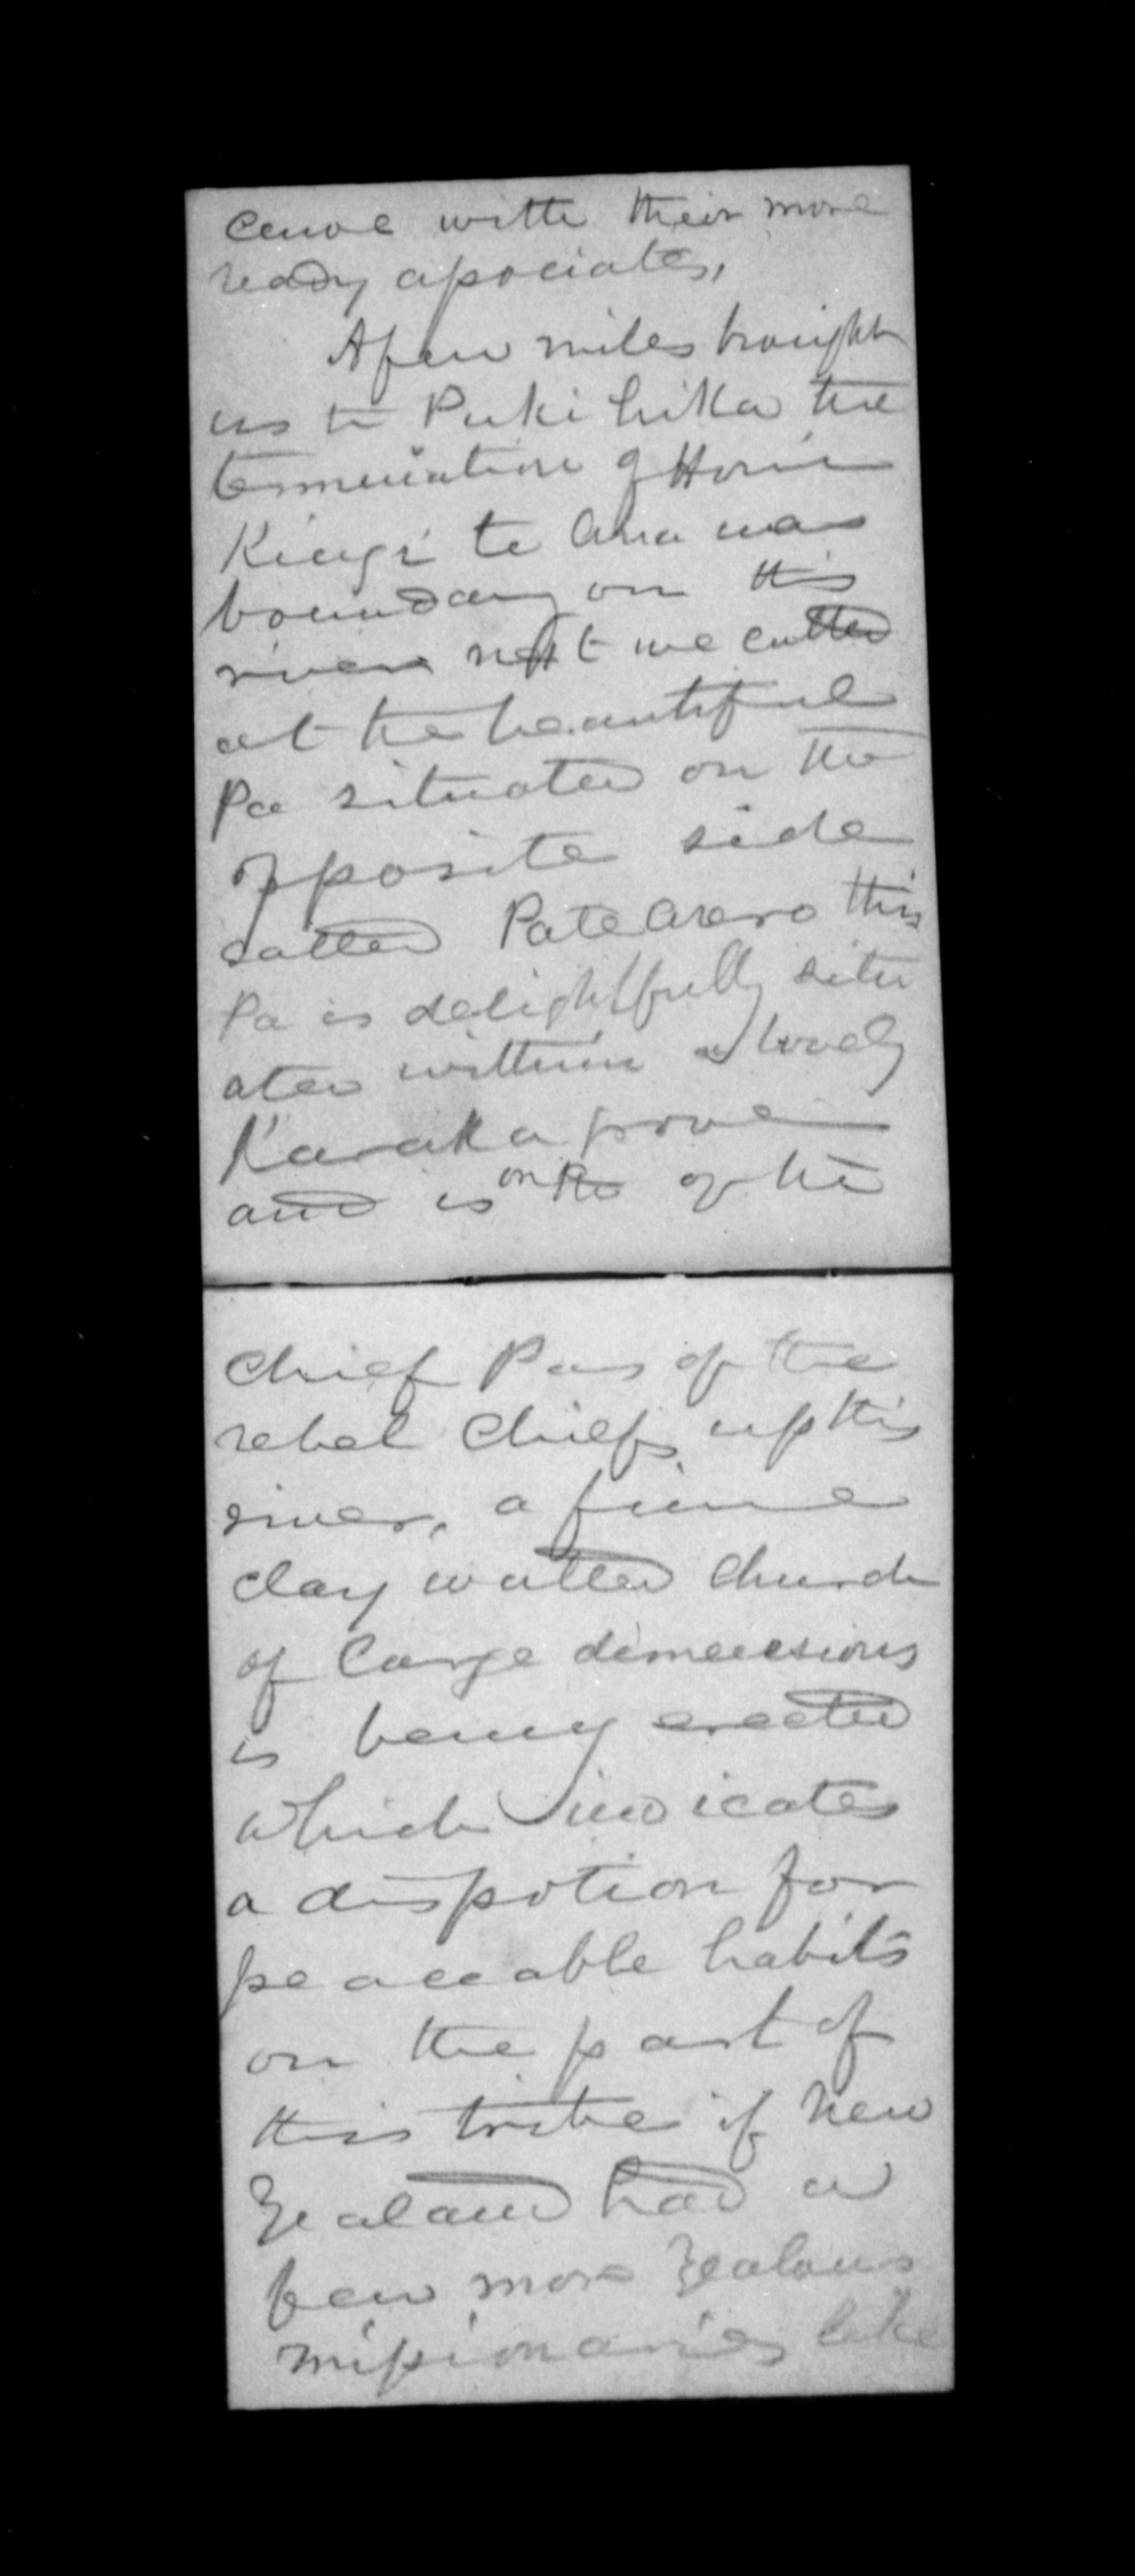 canoe with their more
ready associates,
A few miles brought
us to Puki hika the
termination of Horie
Kingi te Ana ua
boundary on this
river next we called
at the beautiful
Pa situated on the
opposite side
called Patearero this
Pa is delightfully situ
ated within a lovely
Karaka grove
and is on of the
chief Pas of the
rebel chiefs up this
river, a fine
clay walled church
of large dimensions
is being erected
which indicates
a dispotion for
peaceable habits
on the part of
this tribe if New
Zealand had a
few more Zealous
missionaries like